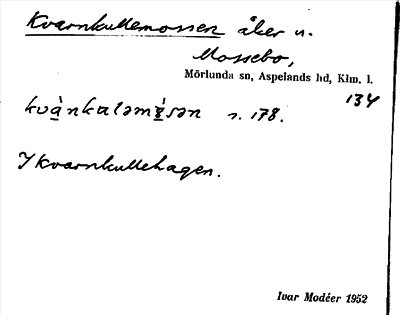 Kvarnkullemossen åker n.
Mossebo,
Mörlunda sn, Aspelands hd, Klm. l.
134
kvànkaləmɷ́sən s. 178.
I Kvarnkullehagen.
Ivar Modéer 1952